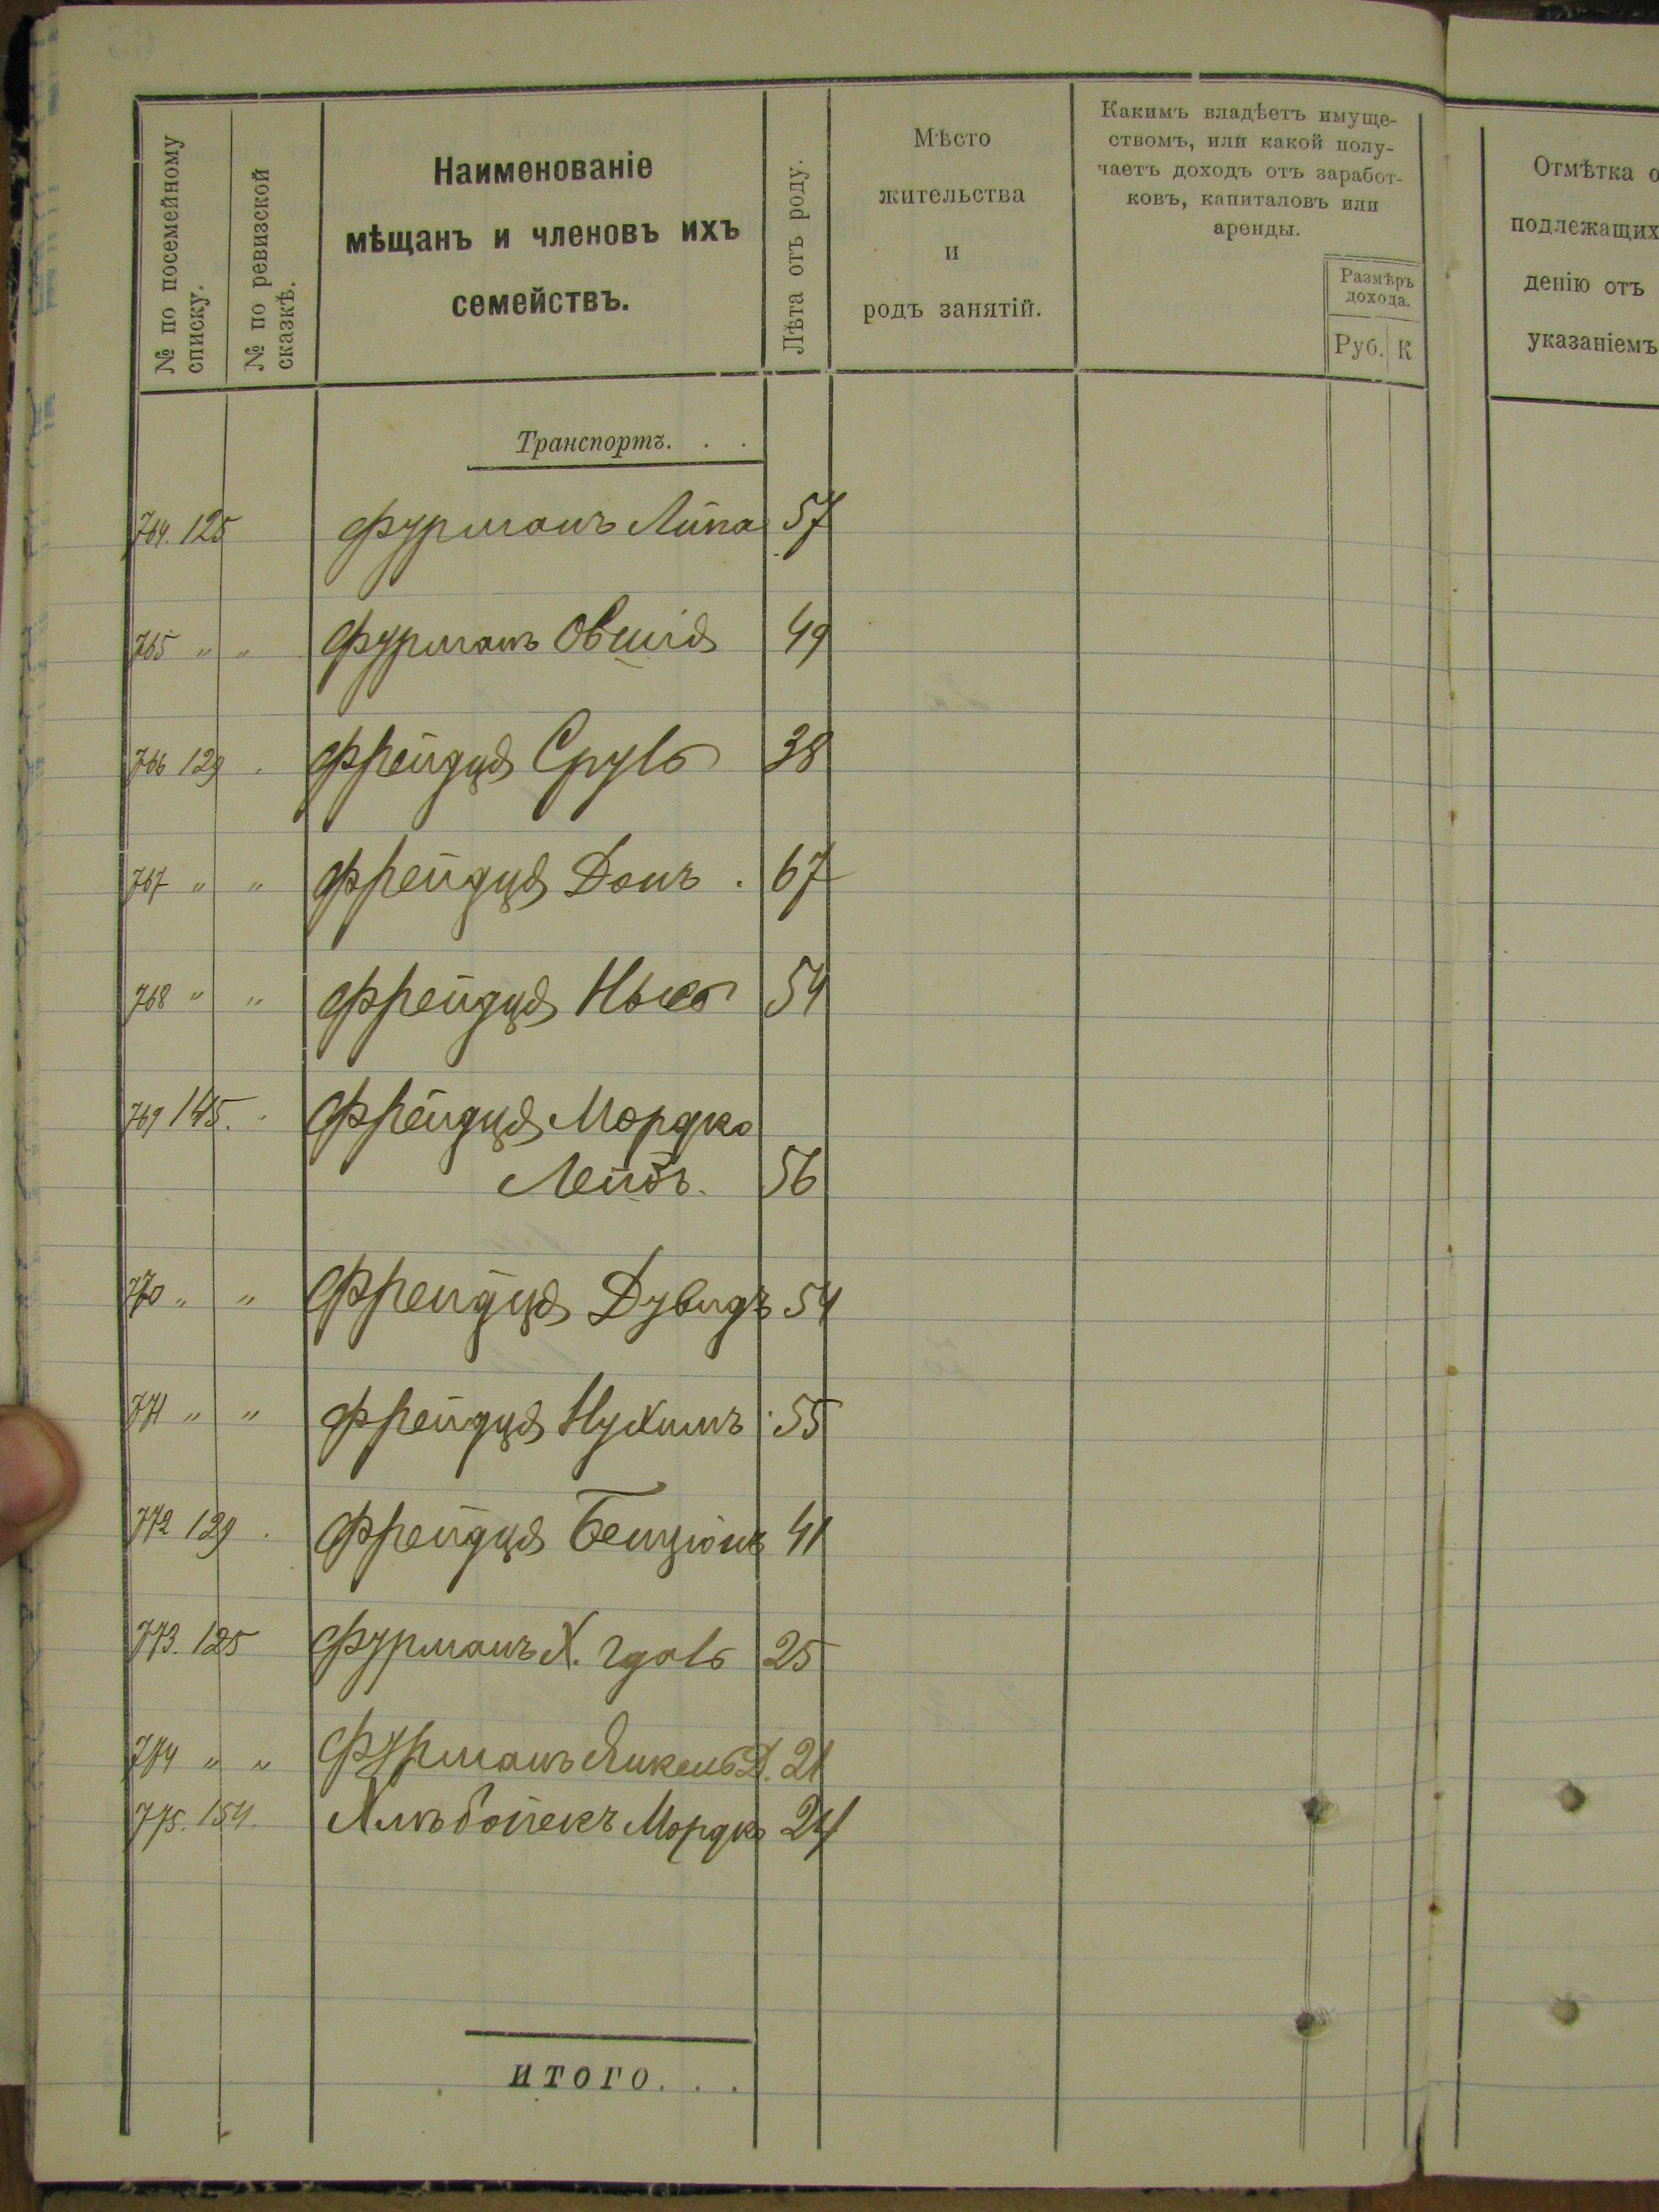 № по посемейному
списку.
№ по ревизской
сказкѣ.
Наименованіе
мѣщанъ и членовъ ихъ
семействъ.
Лѣта отъ роду.
Мѣсто
жительства
и
родъ занятій.
Какимъ владѣетъ имуще-
ствомъ, или какой полу-
чаетъ доходъ отъ заработ-
ковъ, капиталовъ или
аренды.
Размѣръ
дохода.
Руб. К
Отмѣтка о
подлежащих
денію отъ
указаніемъ
Транспортъ. . .
764. 125 Фурманъ Липа 57
765 " " Фурманъ Овшія 49
766 129 . Фрейдця Сруль 38
767 " " Фрейдця Донъ . 67
768 " " Фрейдця 54
769 145. . Фрейдця Мордко
Лейбъ. 56
770 " " Фрейдця Дувидъ 54
771 " " Фрейдця Нухимъ 55
772 129 . Фрейдця Бенціонъ 41
773. 125 Фурманъ Х. Гдаль 25
774 " " Фурманъ Янкель Д. 21
775. 154. Мордко 24
ИТОГО. . .